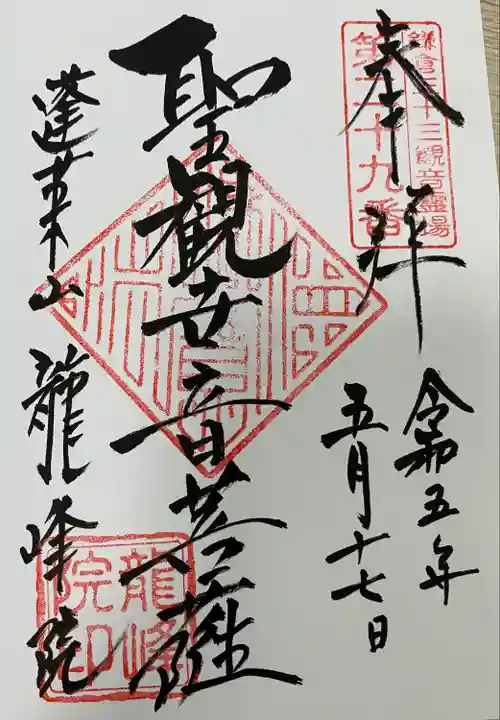 鎌倉三十三観音霊場
第二十九番
奉拝
令和五年
五月十七日
聖観世音菩薩
蓬莱山 龍峰院
龍峰
院印